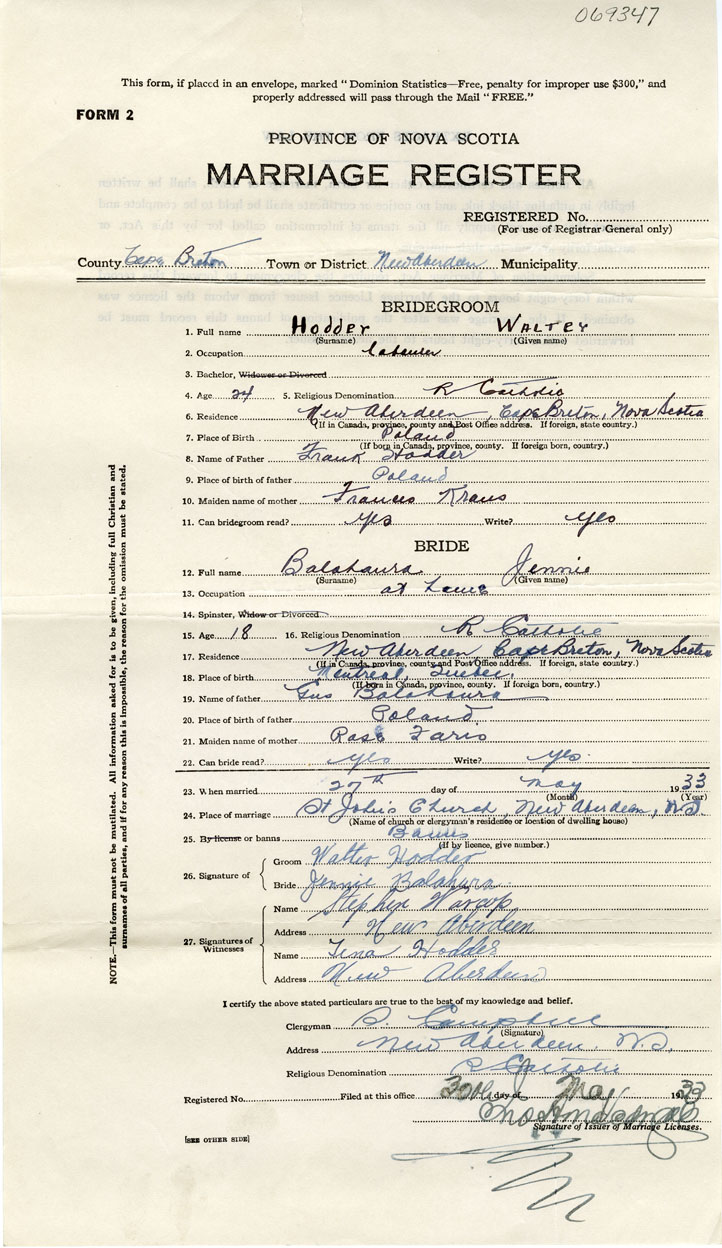 069347
This form, if placed in an envelope, marked "Dominion Statistics—Free, penalty for improper use $300," and
properly addressed will pass through the Mail "FREE."
FORM 2
PROVINCE OF NOVA SCOTIA
MARRIAGE REGISTER
REGISTERED No.
(For use of Registrar General only)
County Cape Breton Town or District New Aberdeen Municipality
BRIDEGROOM
1. Full name Hodder Walter
(Surname) (Given name)
2. Occupation labourer
3. Bachelor, Widower or Divorced
4. Age 24 5. Religious Denomination R Catholic
6. Residence New Aberdeen, Cape Breton, Nova Scotia
(If in Canada, province, county and Post Office address. If foreign, state country.)
7. Place of Birth Poland
(If born in Canada, province, county. If foreign born, country.)
8. Name of Father Frank Hodder
9. Place of birth of father Poland
10. Maiden name of mother Frances Kraus
11. Can bridegroom read? yes Write? yes
BRIDE
12. Full name Balahura Jennie
(Surname) (Given name)
13. Occupation at home
14. Spinster, Widow or Divorced
15. Age 18 16. Religious Denomination R Catholic
17. Residence New Aberdeen Cape Breton, Nova Scotia
(If in Canada, province, county and Post Office address. If foreign, state country.)
18. Place of birth Montreal, Quebec,
(If born in Canada, province, county. If foreign born, country.)
19. Name of father Gus Balahura
20. Place of birth of father Poland
21. Maiden name of mother Rose Faris
22. Can bride read? yes Write? yes
23. When married 27th day of May 1933
(Month) (Year)
24. Place of marriage St John's Church, New Aberdeen, N.S.
(Name of church or clergyman's residence or location of dwelling house)
25. By license or banns Banns
(If by licence, give number.)
26. Signature of Groom Walter Hodder
Bride Jennie Balahura
27. Signatures of Witnesses
Name Stephen Warcop
Address New Aberdeen
Name Tena Hodder
Address New Aberdeen
I certify the above stated particulars are true to the best of my knowledge and belief.
Clergyman Campbell
(Signature)
Address New Aberdeen N.S.
Religious Denomination R Catholic
Registered No. Filed at this office 30th day of May 1933
Signature of Issuer of Marriage Licenses.
[SEE OTHER SIDE]
NOTE.—This form must not be mutilated. All information asked for is to be given, including full Christian and
surnames of all parties, and if for any reason this is impossible, the reason for the omission must be stated.